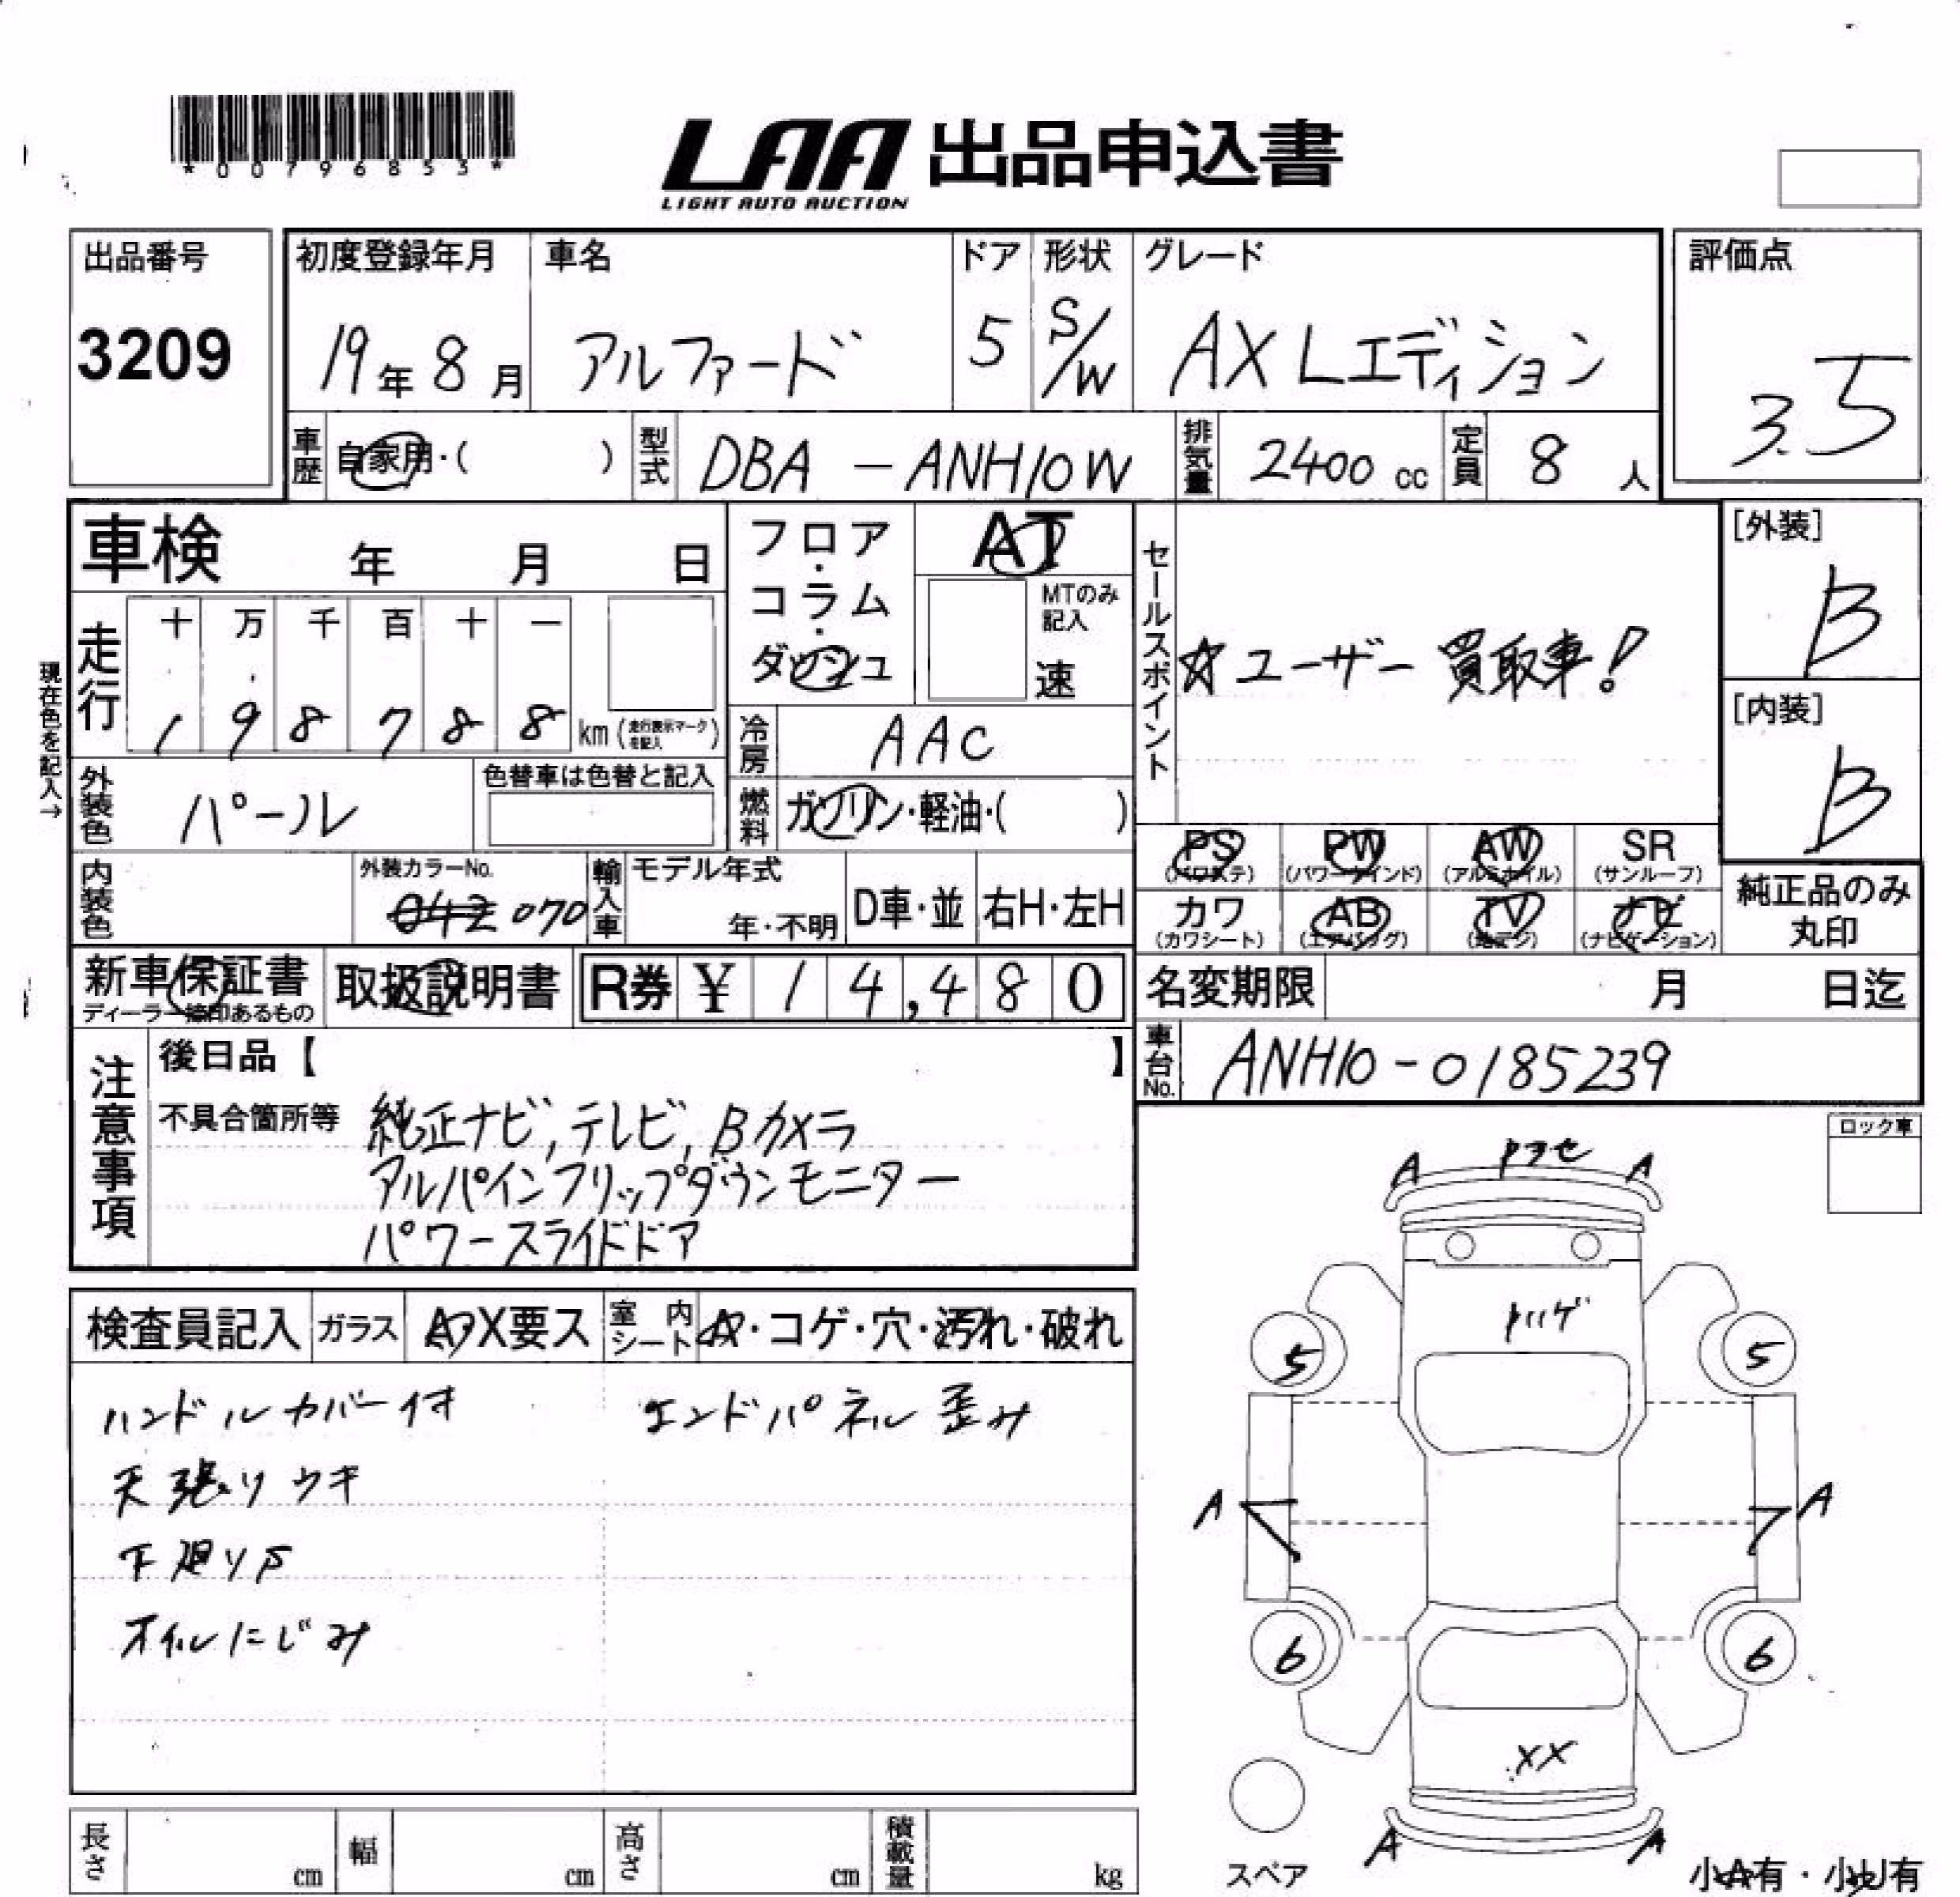 *00796853*
LAA 出品申込書
LIGHT AUTO AUCTION
出品番号
3209
初度登録年月
19年8月
車名
アルファード
ドア
5
形状
S/W
グレード
AX Lエディション
評価点
3.5
車歴
自家用・( )
型式
DBA - ANH10W
排気量
2400 cc
定員
8 人
車検 年 月 日
フロア・コラム・ダッシュ
AT
MTのみ記入
速
セールスポイント
☆ユーザー買取車!
[外装]
B
[内装]
B
現在色を記入→
走行
十 万 千 百 十 一
1 9 8 7 8 8 km (走行表示マークを記入)
冷房
AAC
燃料
ガソリン・軽油・( )
外装色
パール
色替車は色替と記入
内装色
外装カラーNo.
042 070
輸入車
モデル年式
年・不明
D車・並
右H・左H
PS
(パワステ)
PW
(パワーウインド)
AW
(アルミホイル)
SR
(サンルーフ)
カワ
(カワシート)
AB
(エアバッグ)
TV
(地デジ)
ナビ
(ナビゲーション)
純正品のみ
丸印
新車保証書
ディーラー捺印あるもの
取扱説明書
R券 ¥ 14,480
名変期限 月 日迄
車台No.
ANH10-0185239
注意事項
後日品【 】
不具合箇所等
純正ナビ,テレビ,Bカメラ
アルパインフリップダウンモニター
パワースライドドア
ロック車
検査員記入
ガラス
A・X要ス
室内シート
A・コゲ・穴・汚れ・破れ
ハンドルカバー付
エンドパネル歪み
天張りウキ
下廻りS
オイルにじみ
A
A
トソゲ
5
5
A
A
6
6
XX
A
A
スペア
小A有・小U有
長さ cm
幅 cm
高さ cm
積載量 kg